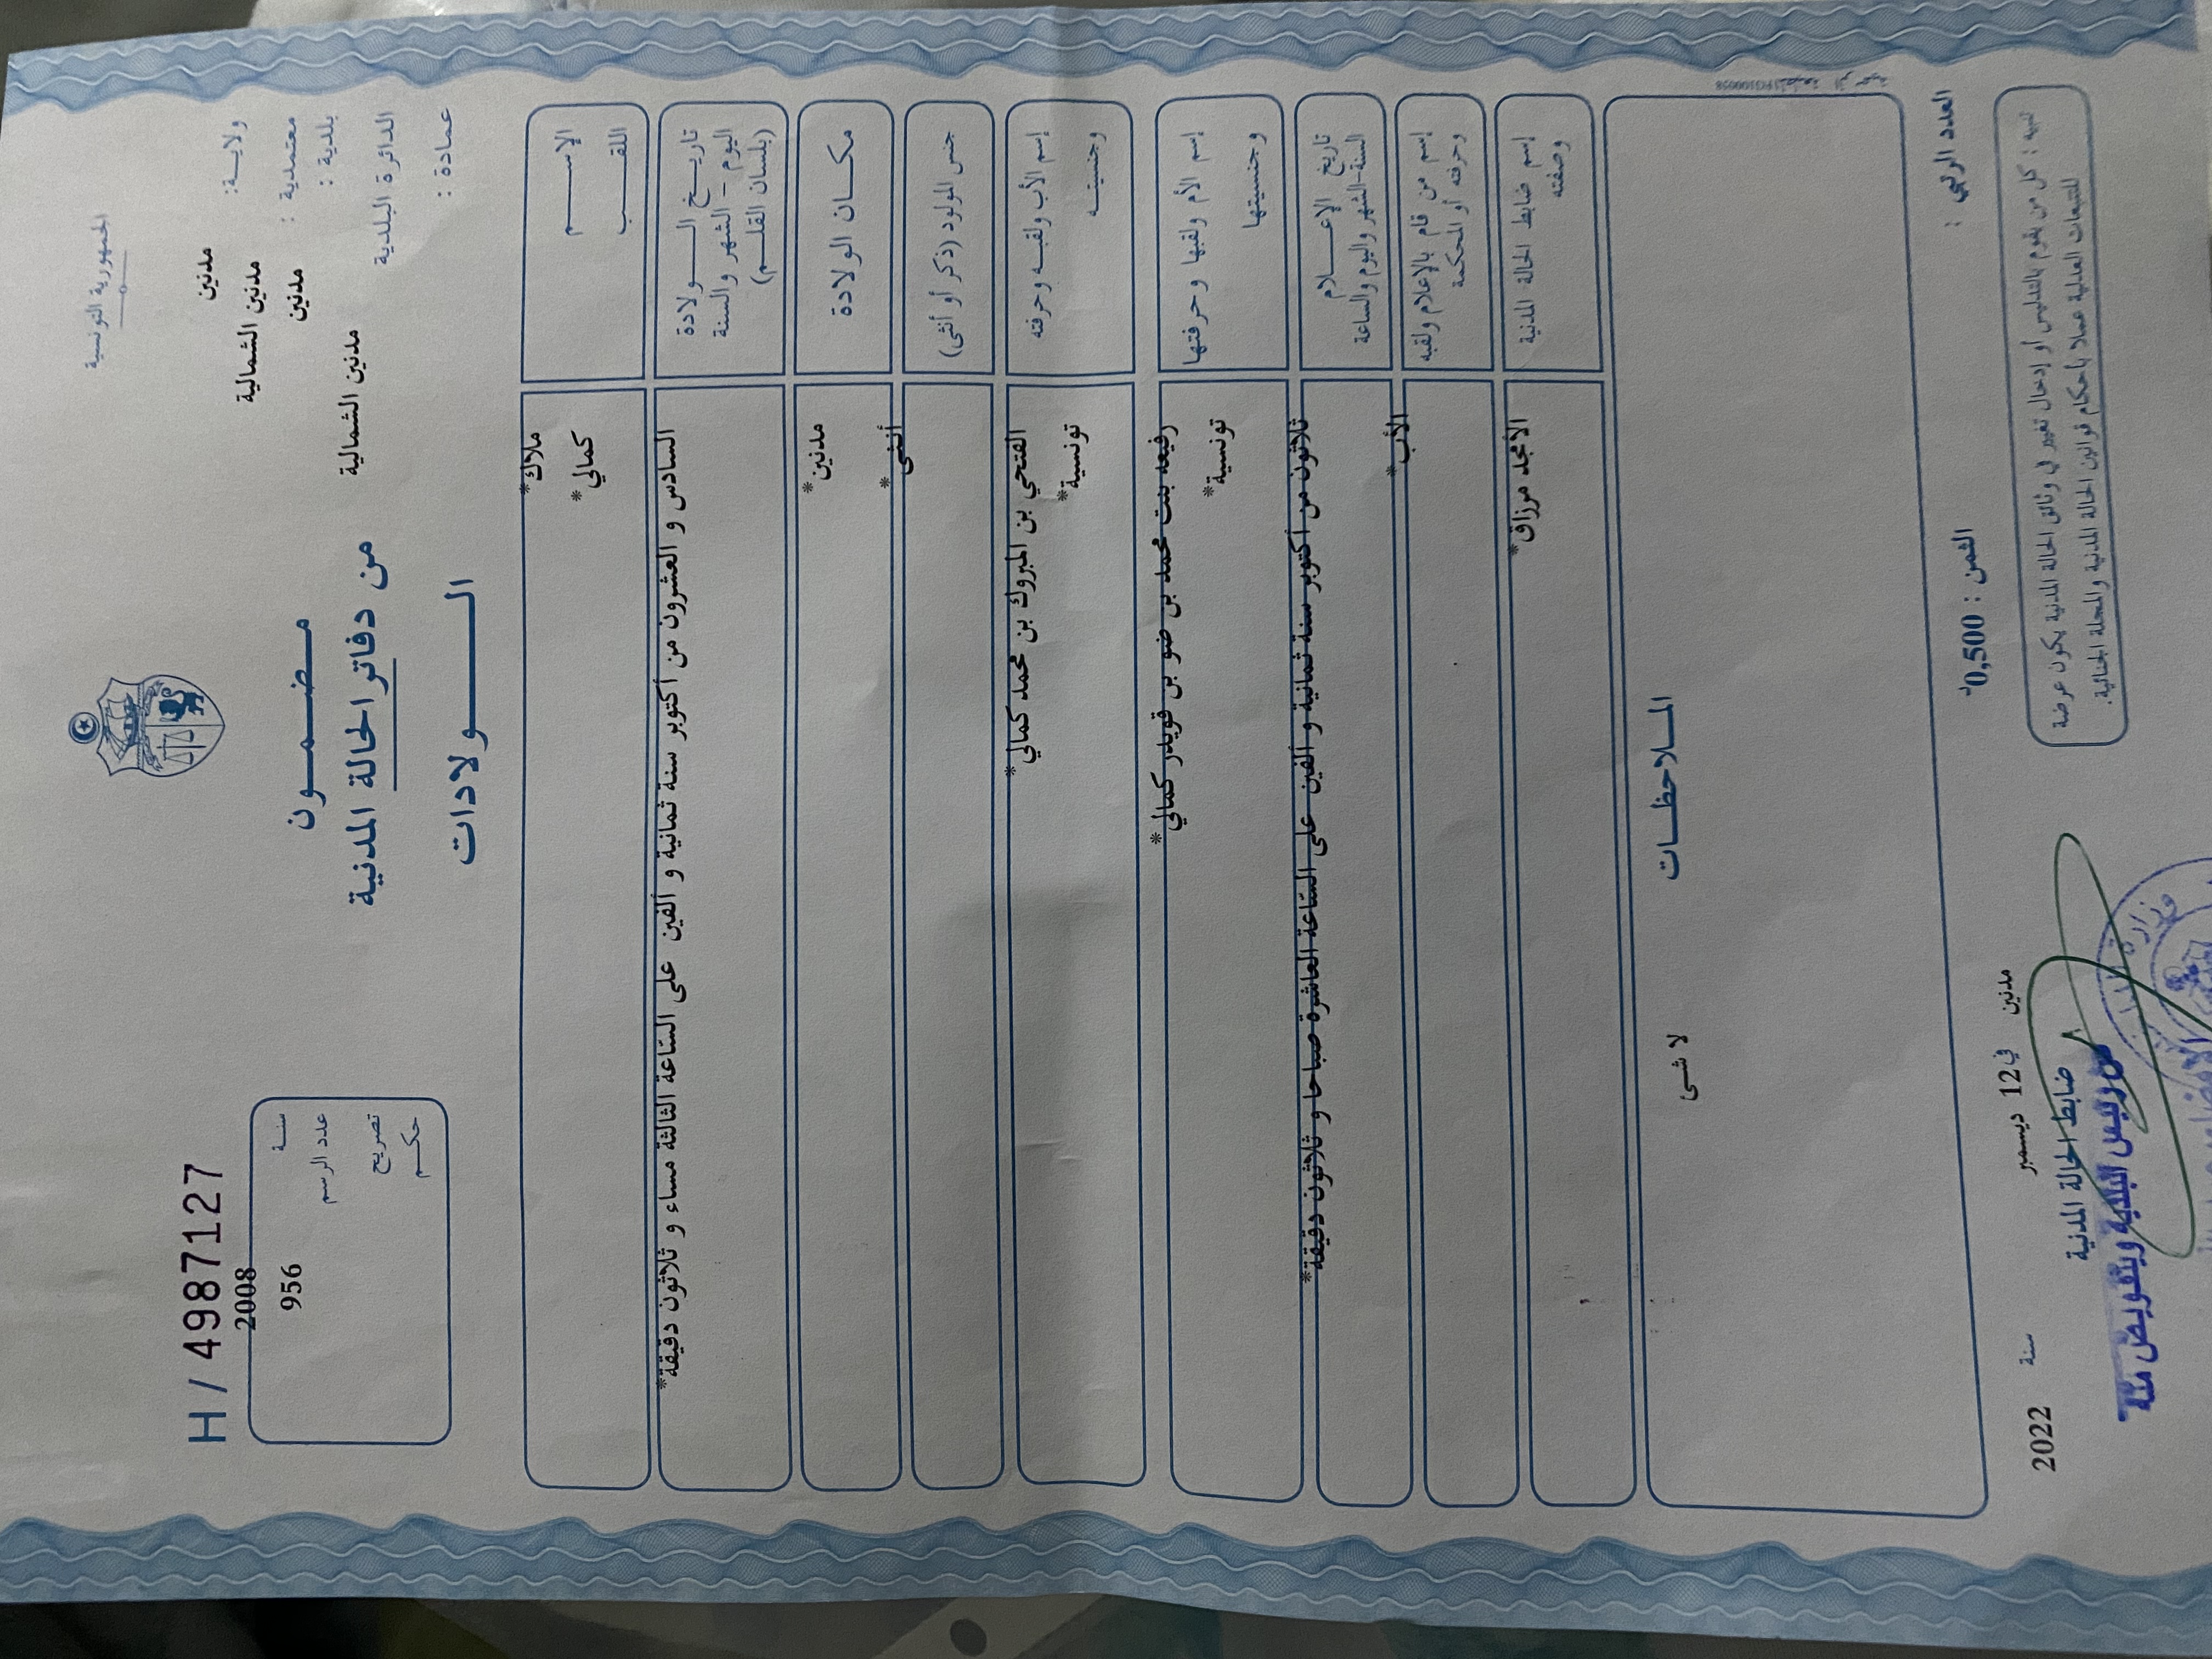 الجمهورية التونسية
ولاية: مدنين
معتمدية : مدنين الشمالية
بلدية : مدنين
الدائرة البلدية مدنين الشمالية
عمادة :
H / 4987127
سنة 2008
عدد الرسم 956
تصريح
حكم
مضمون
من دفاتر الحالة المدنية
الولادات
الإسم ملاك*
اللقب كمالي*
تاريخ الولادة
اليوم - الشهر والسنة
(بلسان القلم)
السادس و العشرون من أكتوبر سنة ثمانية و ألفين على الساعة الثالثة مساء و ثلاثون دقيقة*
مكان الولادة مدنين*
جنس المولود (ذكر أو أنثى) أنثى*
إسم الأب ولقبه وحرفته الفتحي بن المبروك بن محمد كمالي*
وجنسيته تونسية*
إسم الأم ولقبها وحرفتها رفيعه بنت محمد بن ضو بن قويدر كمالي*
وجنسيتها تونسية*
تاريخ الإعلام
السنة-الشهر واليوم والساعة
ثلاثون من أكتوبر سنة ثمانية و ألفين على الساعة العاشرة صباحا و ثلاثون دقيقة*
إسم من قام بالإعلام ولقبه
وحرفته أو المحكمة
الأب*
إسم ضابط الحالة المدنية
وصفته
الأمجد مرزاق*
الملاحظات
لا شئ
العدد الرتبي :
الثمن : 0,500د
تنبيه : كل من يقوم بالتدليس أو إدخال تغيير في وثائق الحالة المدنية يكون عرضة
للتتبعات العدلية عملا بأحكام قوانين الحالة المدنية والمجلة الجنائية.
مدنين في 12 ديسمبر سنة 2022
ضابط الحالة المدنية
عن رئيس البلدية وبتفويض منه
وزارة